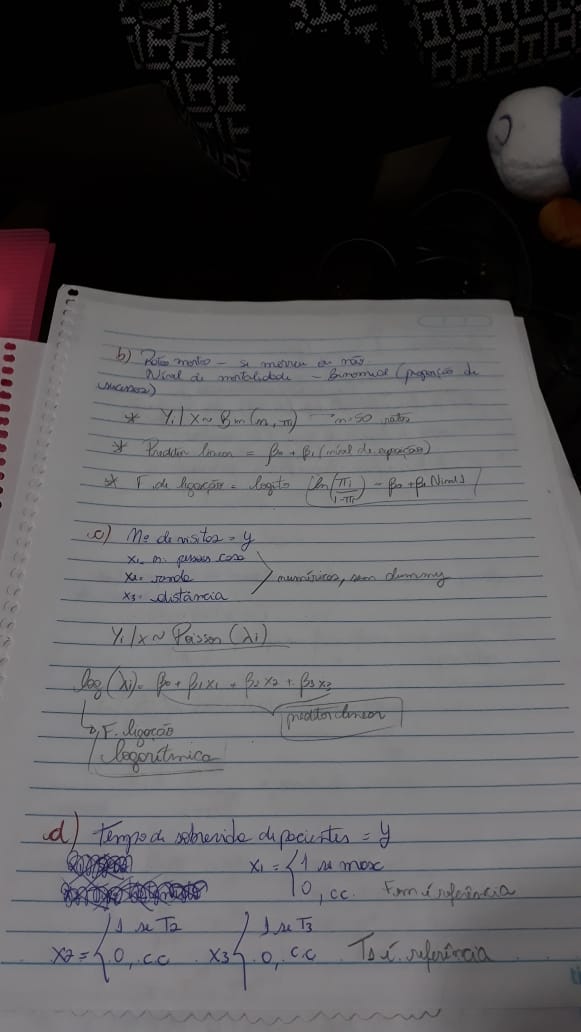 b) Ratos mortos - se morreu ou não
Nível de mortalidade - Binomial (proporção de
sucessos)
* Yi | X ~ Bin (n, πi) → n=50 ratos
* Preditor linear = β0 + β1 (nível de exposição)
* F. de ligação = logito (ln(πi/1-πi) = β0 + β1 Nível)
c) Nº de visitas = y
x1 = n. pessoas casa
x2 = renda
x3 = distância
numéricas, sem dummy
Yi | x ~ Poisson (λi)
log (λi) = β0 + β1 x1 + β2 x2 + β3 x3
preditor linear
F. ligação
logarítmica
d) Tempo de sobrevida de pacientes = y
x1 = { 1 se masc
0, cc. Fem é referência
x2 = { 1 se T2
0, c.c
x3 { 1 se T3
0, c.c
é referência